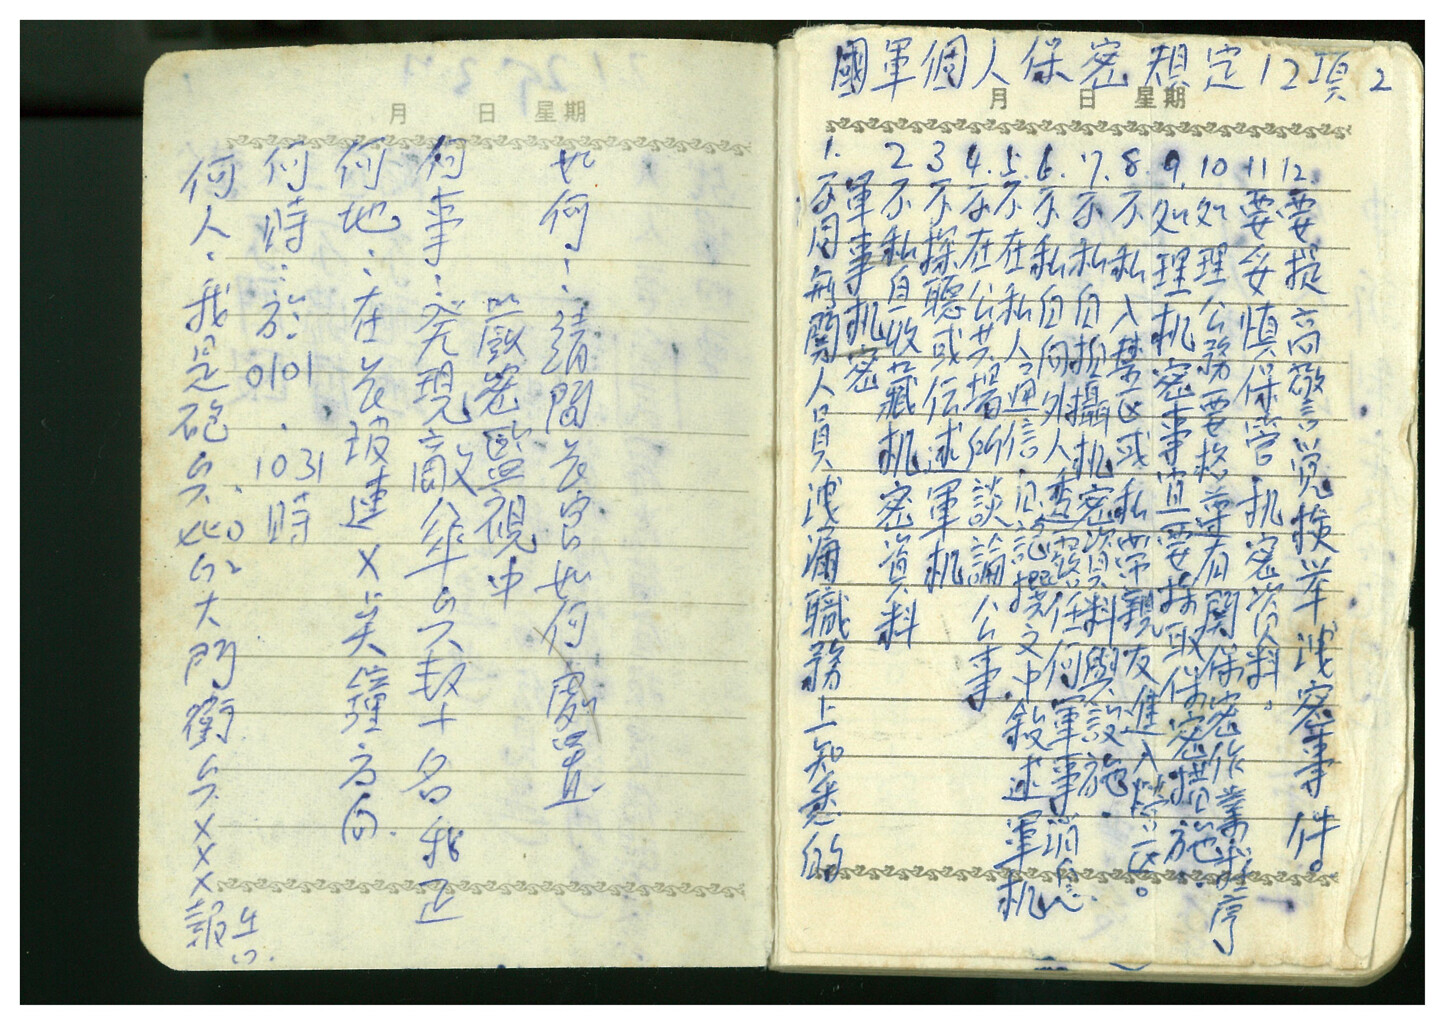 月 日 星期
何人：我是砲兵
大門衛兵XXX報告
何時：於0101.1031時
何地：在
連X
鐘方向.
何事：發現敵傘兵數十名我正
嚴密監視中
如何：請問長官如何處置
國軍個人保密規定12項 2
月 日 星期
1.不同無關人員洩漏職務上知悉的
軍事机密
2不私自收藏机密資料
3不探聽或传述軍机
4.不在公共場所談論公事
5.不在私人通信日記撰文中敘述軍机
6.不私自向外人透露任何軍事消息.
7.不私自拍攝机密資料與設施
8.不私入禁区或私带親友進入禁区。
9.处理机密事宜要採取保密措施.
10处理公務要恪遵有関保密作業程序
11要妥慎保管机密資料。
12.要提高警觉檢举洩密事件。